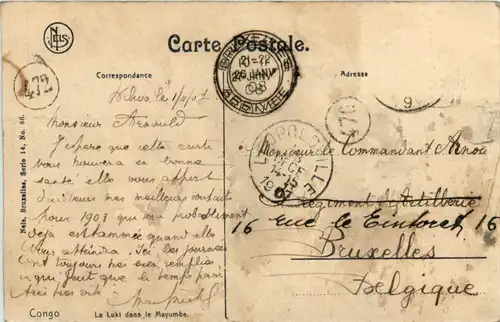 NELS
Carte Postale.
Correspondance
Adresse
472
BRUXELLES
21-22
26 JANV
08
472
9
LEOPOLDVILLE
Monsieur Arnould
J'espère que cette carte
vous trouvera en bonne
santé elle vous apport
d'ailleurs mes meilleurs souhaits
pour 1908 qui sera probablement
déjà entammée quand elle
vous atteindra. Ici les journées
sont toujours très bien remplies
ce qui fait que le temps passe
très très vite
Monsieur le Commandant Arnou
Régiment d'Artillerie
16 rue le Tintoret 16
Bruxelles
Belgique
Nels, Bruxelles, Serie 14, No. 86.
Congo
La Luki dans le Mayumbe.